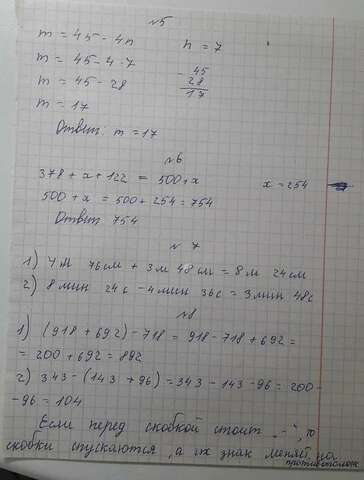 №5
m = 45 - 4n n = 7
m = 45 - 4 · 7
m = 45 - 28
- 45
28
17
m = 17
Ответ: m = 17
№6
378 + x + 122 = 500 + x x = 254
500 + x = 500 + 254 = 754
Ответ 754
№7
1) 4м 76см + 3м 48см = 8м 24см
2) 8мин 24с - 4мин 36с = 3мин 48с
№8
1) (918 + 692) - 718 = 918 - 718 + 692 =
= 200 + 692 = 892
2) 343 - (143 + 96) = 343 - 143 - 96 = 200 -
- 96 = 104
Если перед скобкой стоит „-“, то
скобки спускаются, а их знак меняй на
противополож